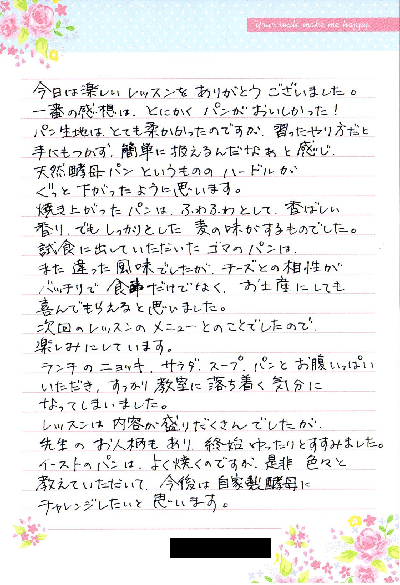 your wish make me happy
今日は楽しいレッスンを ありがとう ございました。
一番の感想は、とにかく パンがおいしかった！
パン生地は、とても柔かかったのですが、習ったやり方だと
手にもつかず、簡単に扱えるんだなぁと感じ、
天然酵母パン というものの ハードルが
ぐっと下がったように思います。
焼き上がった パンは、ふわふわとして、香ばしい
香り、でもしっかりとした 麦の味がするものでした。
試食に出していただいた ゴマのパンは、
また違った風味でしたが、チーズとの相性が
バッチリで 食事だけでなく、お土産にしても
喜んでもらえると思いました。
次回のレッスンの メニューとのことでしたので、
楽しみにしています。
ランチの ニョッキ、サラダ、スープ、パンと お腹いっぱい
いただき、すっかり 教室に 落ち着く気分に
なってしまいました。
レッスンは 内容が盛りだくさんでしたが、
先生の お人柄も あり、終始 ゆったりとすすみました。
イーストのパンは、よく焼くのですが、是非 色々と
教えていただいて、今後は 自家製酵母に
チャレンジしたいと 思います。